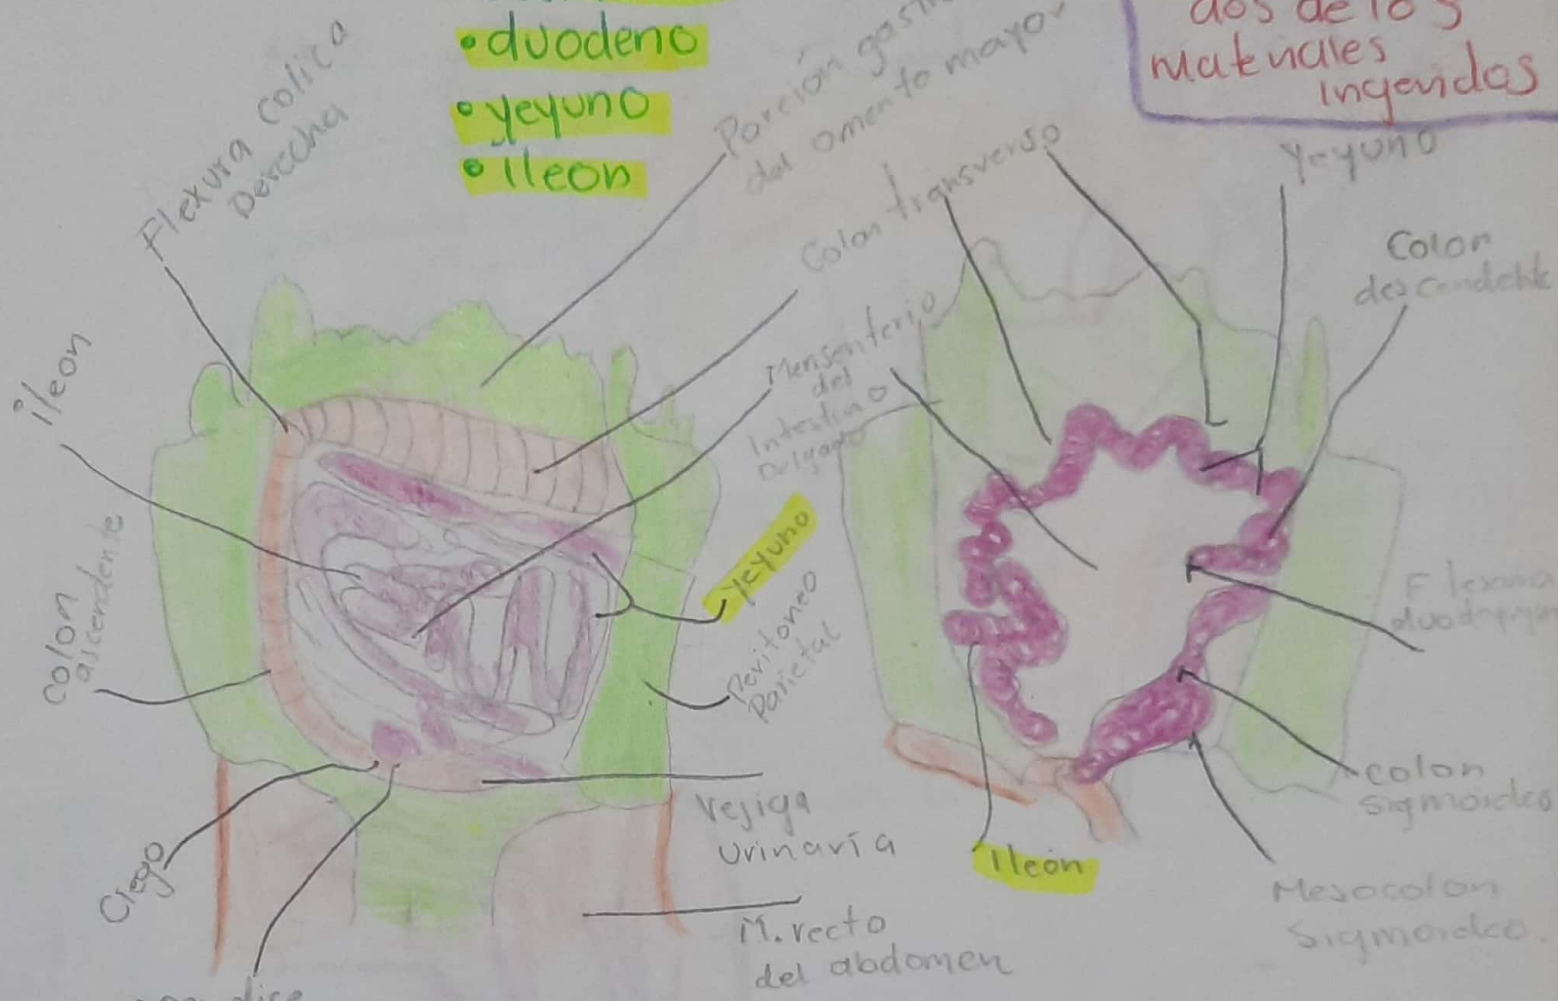 • duodeno
• yeyuno
• Ileon
dos de los
materiales
ingeridos
Flexura colica
Derecha
Porción
del omento mayor
Colon transverso
yeyuno
Colon
descendente
ileon
Mensenterio
del
Intestino
Delgado
yeyuno
Peritoneo
Parietal
colon
ascendente
Flexura
colon
Sigmoideo
Vejiga
urinaria
Ileón
Ciego
Mesocolon
Sigmoideo.
M. recto
del abdomen